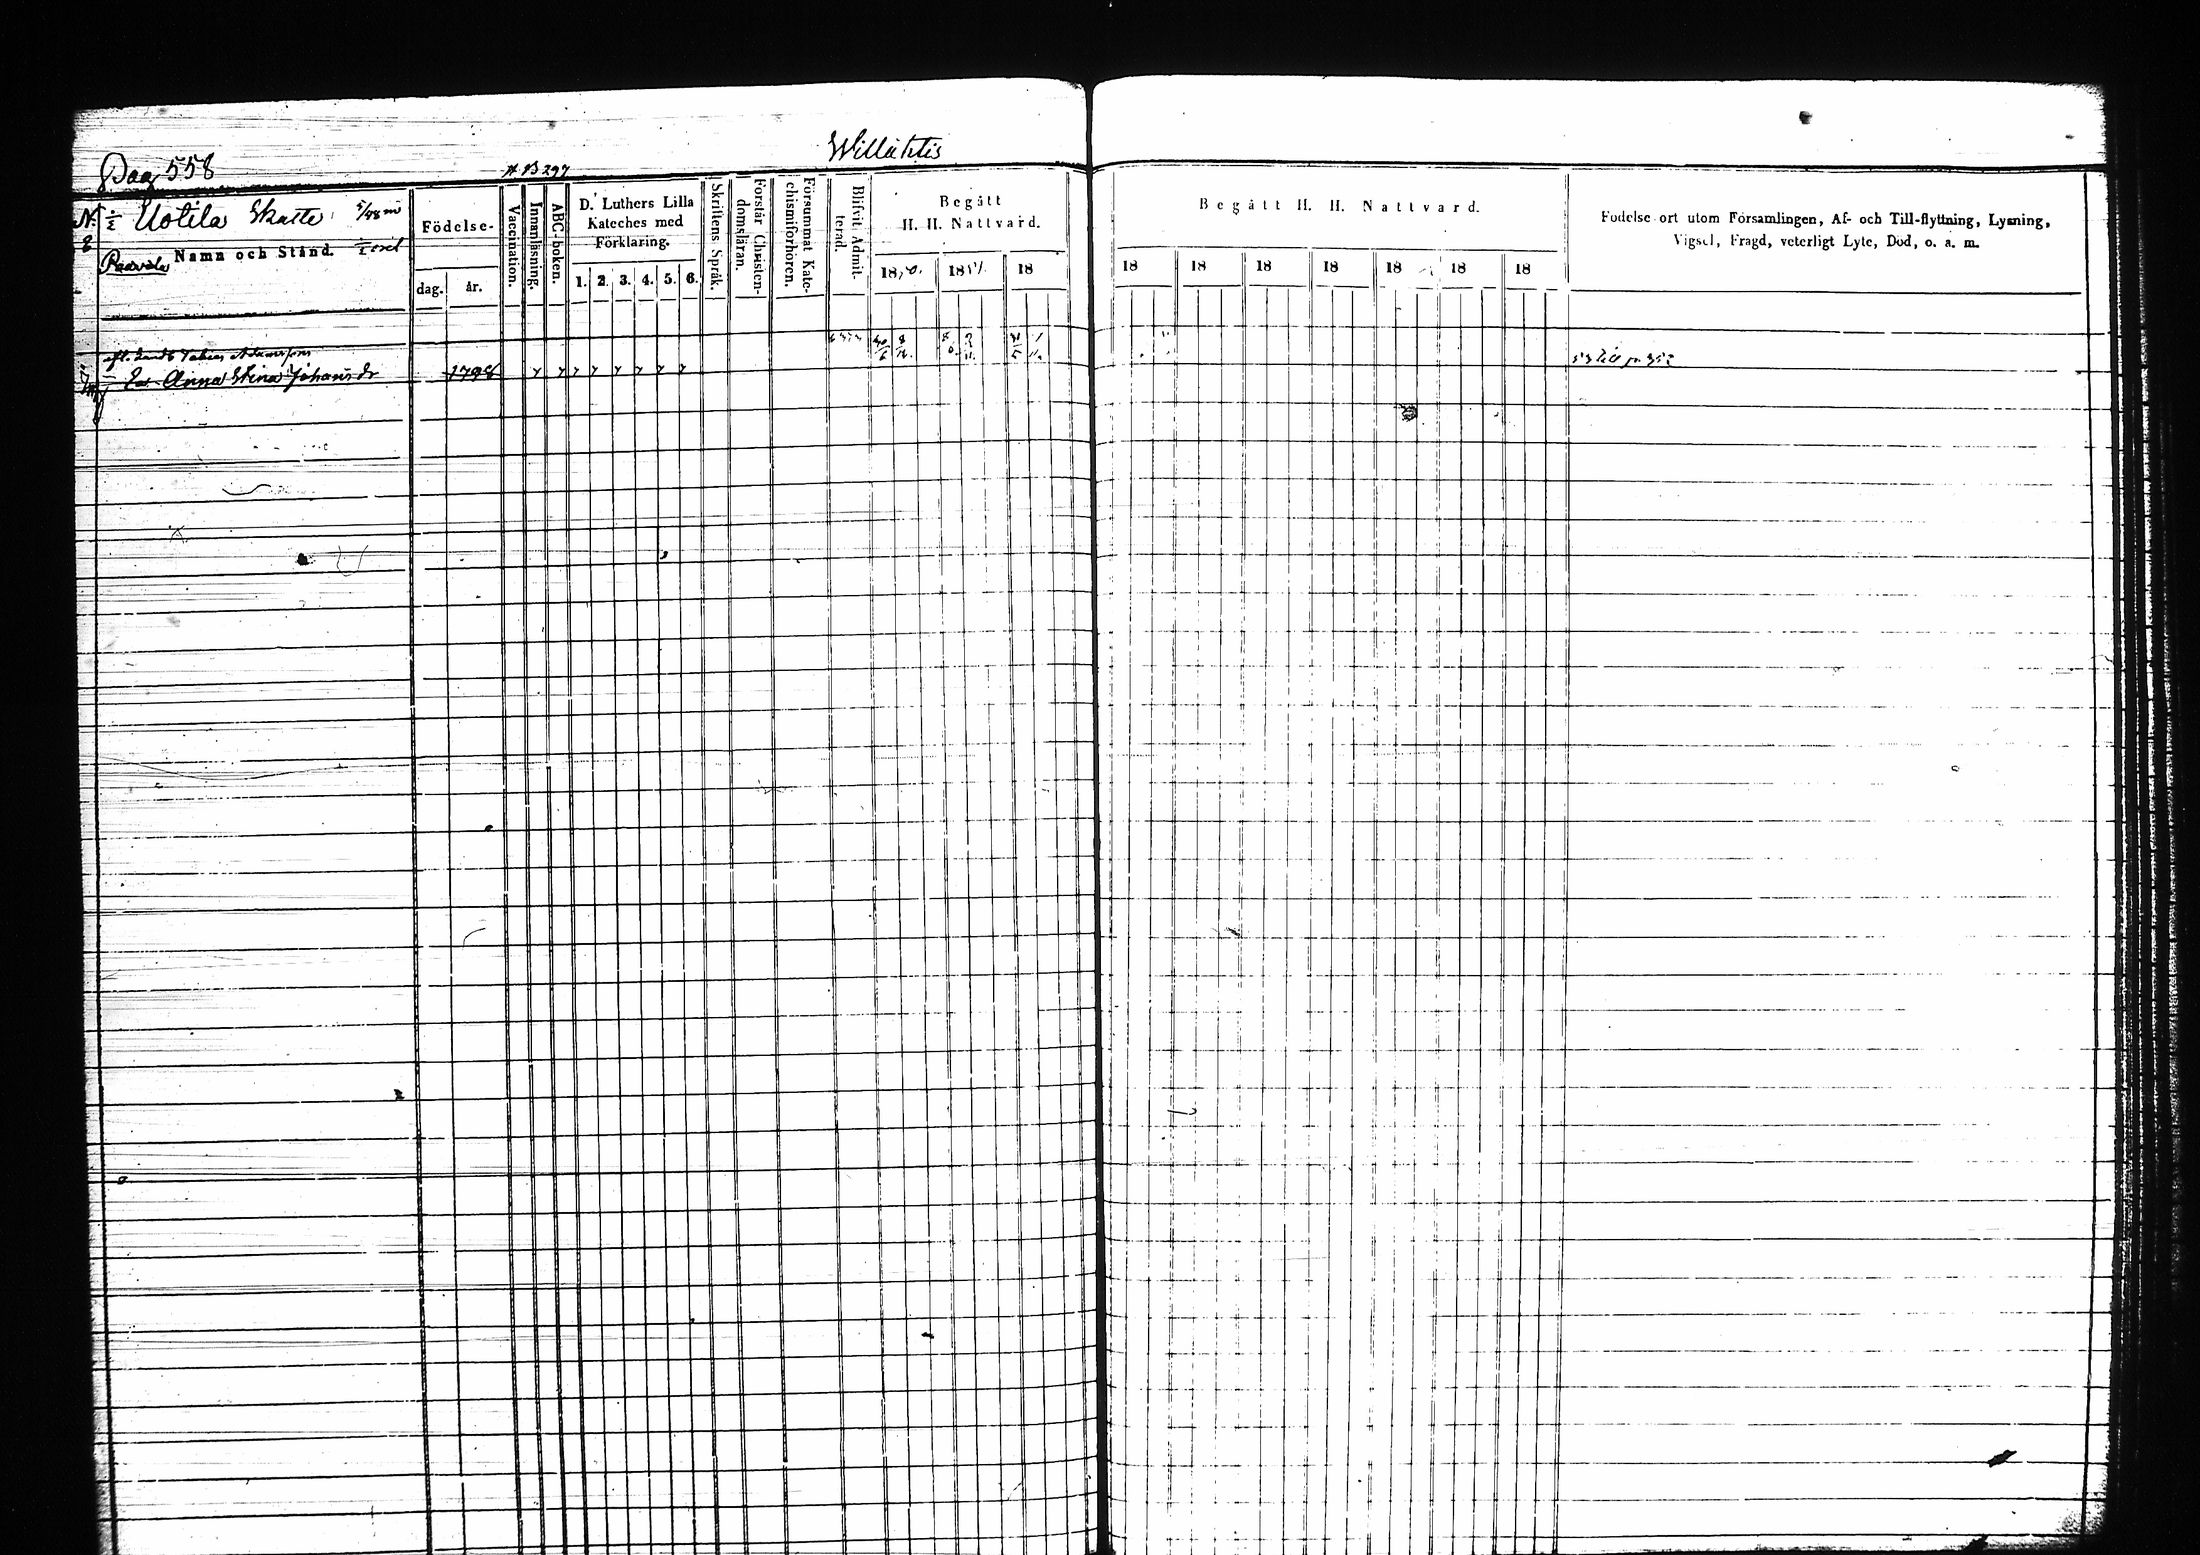 Willähtis
Pag 558
N.
8
Uotila Skatte
Namn och Stånd.
Födelse-
dag.
år.
Vaccination.
Innanläsning.
ABC-boken.
D. Luthers Lilla
Kateches med
Förklaring.
1. 2. 3. 4. 5. 6.
Skriftens Språk.
Förstår Christen-
domsläran.
Försummat Kate-
chismiförhören.
Blifvit Admit-
terad.
Begått
H. H. Nattvard.
1850. 1851. 18
Begått H. H. Nattvard.
18 18 18 18 18 18 18
Födelse ort utom Församlingen, Af- och Till-flyttning, Lysning,
Vigsel, Frägd, veterligt Lyte, Död, o. a. m.
Anna Stina Johansdr 1798